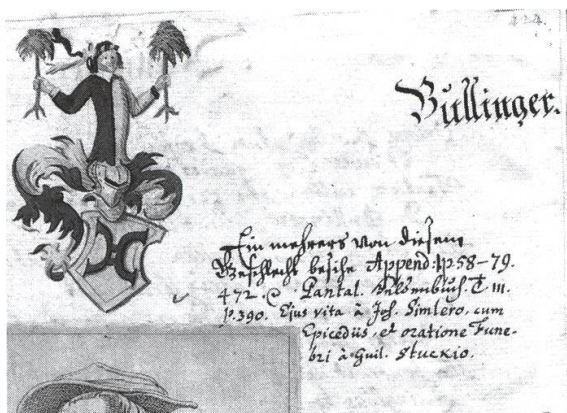 424.
Bullinger.
Ein mehrers von diesem
Geschlecht besihe Append: p. 58–79.
472. Pantal. Heldenbuch. T. III.
p. 390. Ejus vita à Jos. Simlero, cum
Epicediis, et oratione Fune-
bri à Guil. Stuckio.